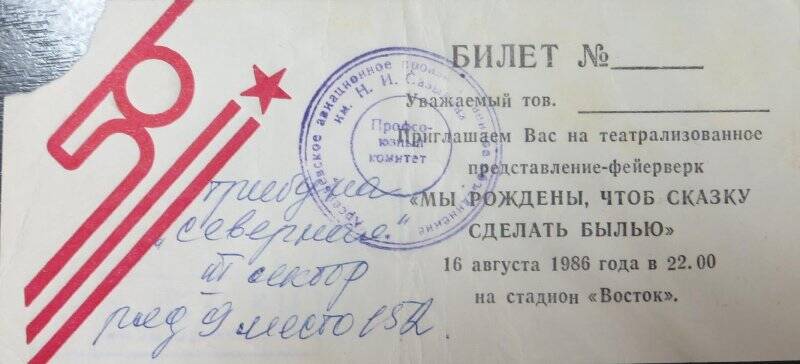 50
БИЛЕТ № ______
Уважаемый тов. ______________
Приглашаем Вас на театрализованное
представление-фейерверк
«МЫ РОЖДЕНЫ, ЧТОБ СКАЗКУ
СДЕЛАТЬ БЫЛЬЮ»
16 августа 1986 года в 22.00
на стадион «Восток».
Арсеньевское авиационное производственное объединение
им. Н. И. Сазыкина
Профсо-
юзный
комитет
трибуна
„Северная"
III сектор
ряд 9 место 152